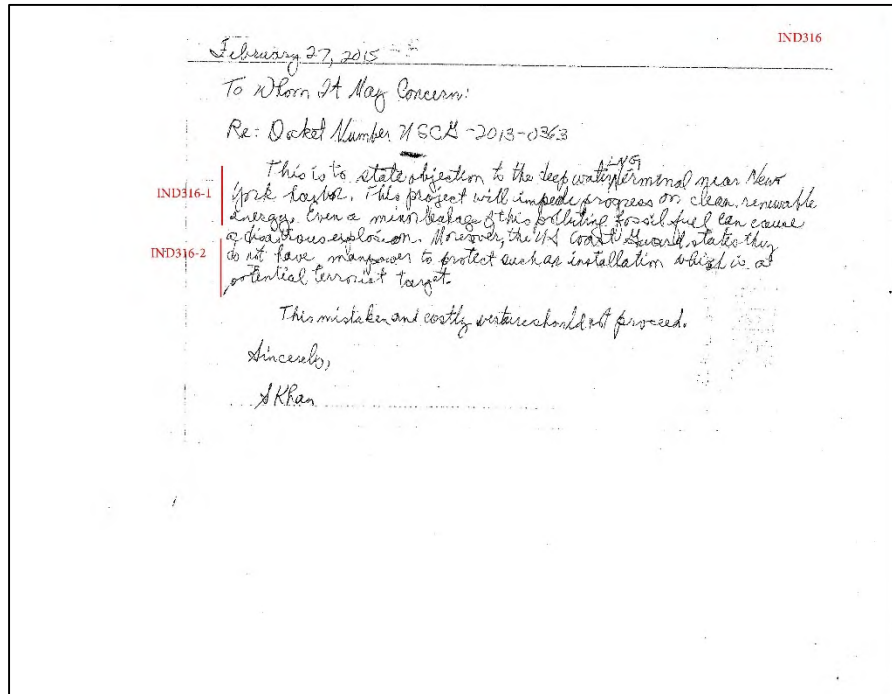 IND316
February 27, 2015
To Whom It May Concern:
Re: Docket Number USCG-2013-0363
This is to state objection to the deep water LNG terminal near New
IND316-1
York harbor. This project will impede progress on clean, renewable
energy. Even a minor leakage of this polluting fossil fuel can cause
a disastrous explosion. Moreover, the US Coast Guard states they
IND316-2
do not have manpower to protect such an installation which is a
potential terrorist target.
This mistaken and costly venture should not proceed.
Sincerely,
S Khan